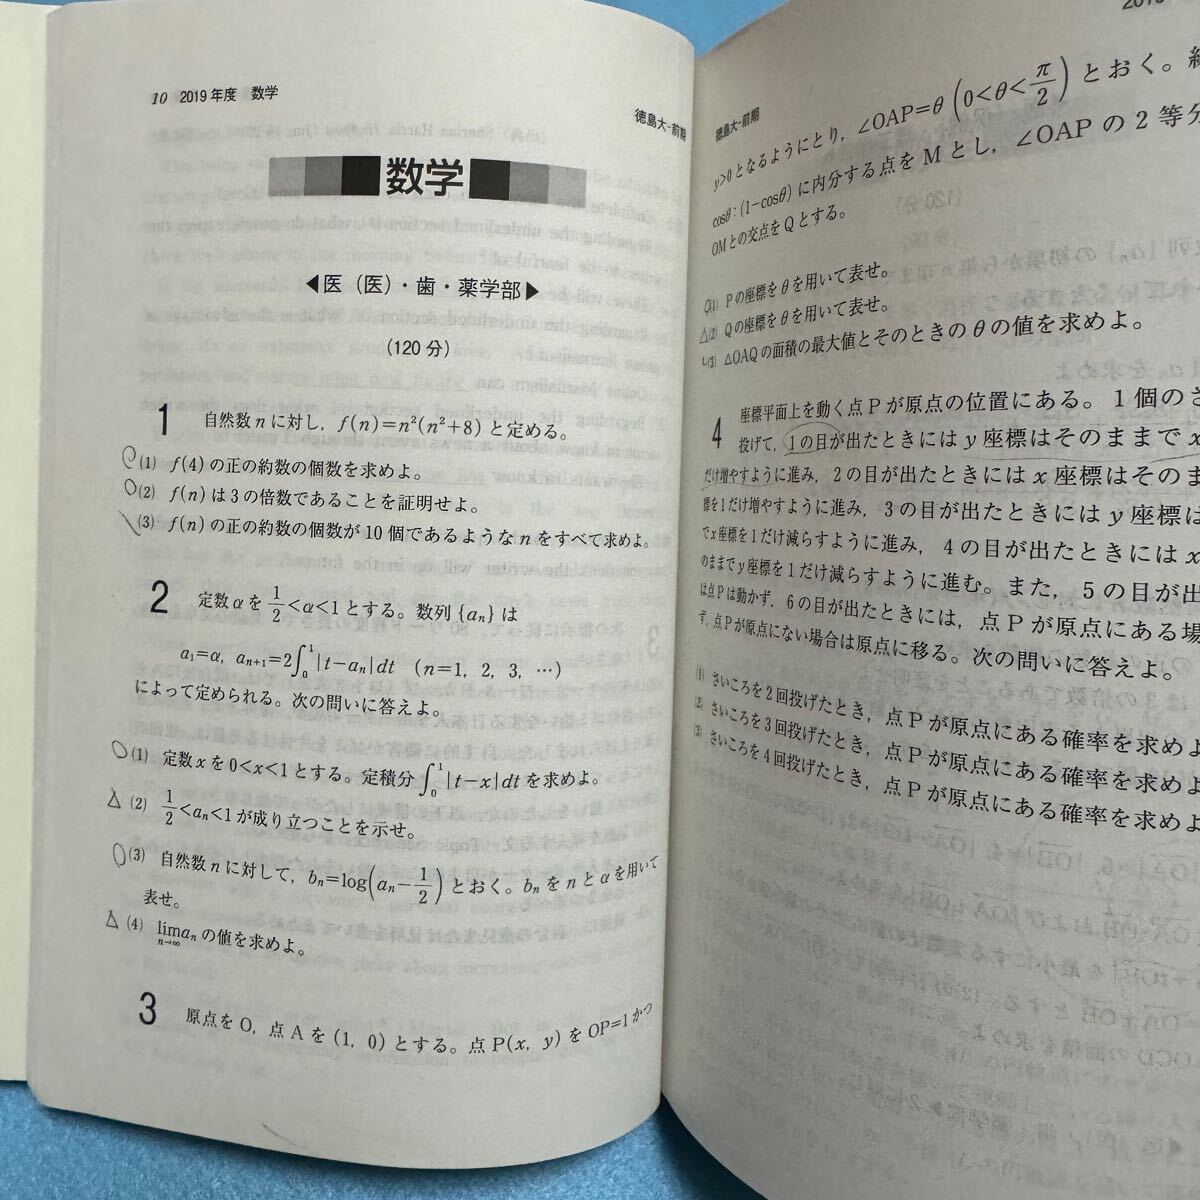 10 2019年度 数学
徳島大-前期
数学
◀医(医)・歯・薬学部▶
(120分)
1 自然数nに対し，f(n)=n²(n²+8)と定める。
(1) f(4)の正の約数の個数を求めよ。
(2) f(n)は3の倍数であることを証明せよ。
(3) f(n)の正の約数の個数が10個であるようなnをすべて求めよ。
2 定数αを1/2<α<1とする。数列{aₙ}は
a₁=α, aₙ₊₁=2∫₀¹|t−aₙ|dt (n=1, 2, 3, …)
によって定められる。次の問いに答えよ。
(1) 定数xを0<x<1とする。定積分∫₀¹|t−x|dtを求めよ。
(2) 1/2<aₙ<1が成り立つことを示せ。
(3) 自然数nに対して，bₙ=log(aₙ−1/2)とおく。bₙをnとαを用いて
表せ。
(4) lim aₙの値を求めよ。
n→∞
3 原点をO，点Aを(1, 0)とする。点P(x, y)をOP=1かつ
徳島大-前期
y>0となるようにとり，∠OAP=θ(0<θ<π/2)とおく。
cosθ：(1−cosθ)に内分する点をMとし，∠OAPの2等分
OMとの交点をQとする。
(1) Pの座標をθを用いて表せ。
(2) Qの座標をθを用いて表せ。
(3) △OAQの面積の最大値とそのときのθの値を求めよ。
4 座標平面上を動く点Pが原点の位置にある。1個のさ
投げて，1の目が出たときにはy座標はそのままでx
だけ増やすように進み，2の目が出たときにはx座標はそのま
標を1だけ増やすように進み，3の目が出たときにはy座標は
でx座標を1だけ減らすように進み，4の目が出たときにはx
のままでy座標を1だけ減らすように進む。また，5の目が出
は点Pは動かず，6の目が出たときには，点Pが原点にある場
ず，点Pが原点にない場合は原点に移る。次の問いに答えよ。
(1) さいころを2回投げたとき，点Pが原点にある確率を求めよ
(2) さいころを3回投げたとき，点Pが原点にある確率を求めよ
(3) さいころを4回投げたとき，点Pが原点にある確率を求めよ